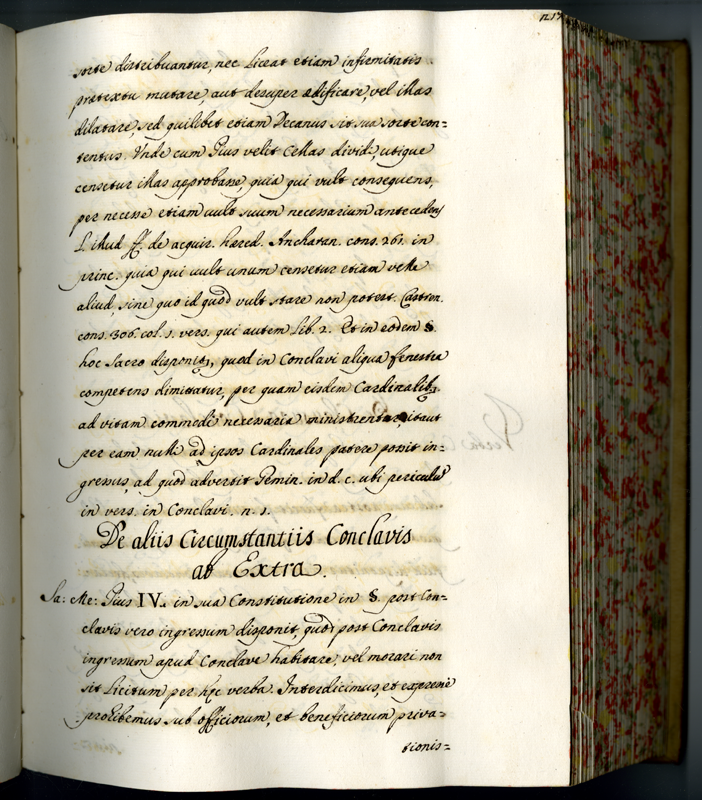 sorte distribuantur, nec liceat etiam infirmitatis
prætextu mutare, aut desuper ædificare, vel illas
dilatare, sed quilibet etiam Decanus sit sua sorte con=
tentus. Vnde cum Pius velit Cellas dividi, utique
censetur illas approbasse, quia qui vult consequens,
per necesse etiam vult suum necessarium antecedens
L. illud ff. de acquir. hered. Ancharan. cons. 261. in
princ. quia qui vult unum censetur etiam velle
aliud, sine quo id quod vult stare non potest. Castren.
cons. 306. col. 1. vers. qui autem lib. 2. Et in eodem §.
hoc sacro disponitur, quod in Conclavi aliqua fenestra
competens dimittatur, per quam eisdem Cardinalib.
ad vitam commodè necessaria ministrentur, itaut
per eam nulli ad ipsos Cardinales patere possit in=
gressus, ad quod advertit Gemin. in d. c. ubi periculũ
in vers. in Conclavi. n. 1.
De aliis Circumstantiis Conclavis
ab Extra.
Sa: Me: Pius IV. in sua Constitutione in §. post Con=
clavis vero ingressum disponit, quod post Conclavis
ingressum apud Conclave habitare, vel morari non
sit licitum per hęc verba. Interdicimus, et expresse
prohibemus sub officiorum, et beneficiorum priva=
tionis=